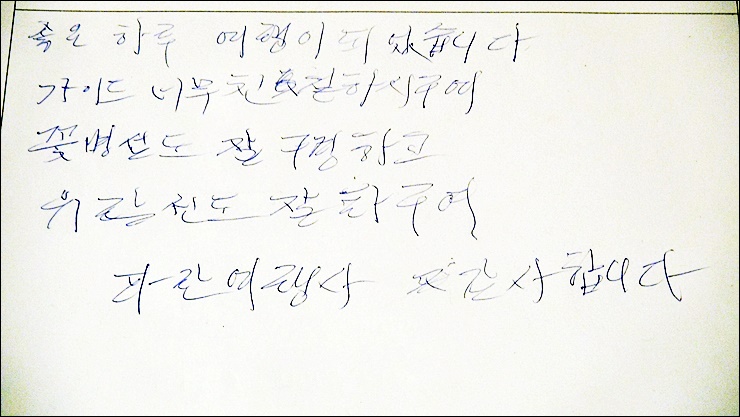 죽은 하루 여행이 되었습니다
가이드 너무 친절하시구여
꽃병선도 잘 구경하고
유람선도 잘 하구여
파란여행사 감사합니다